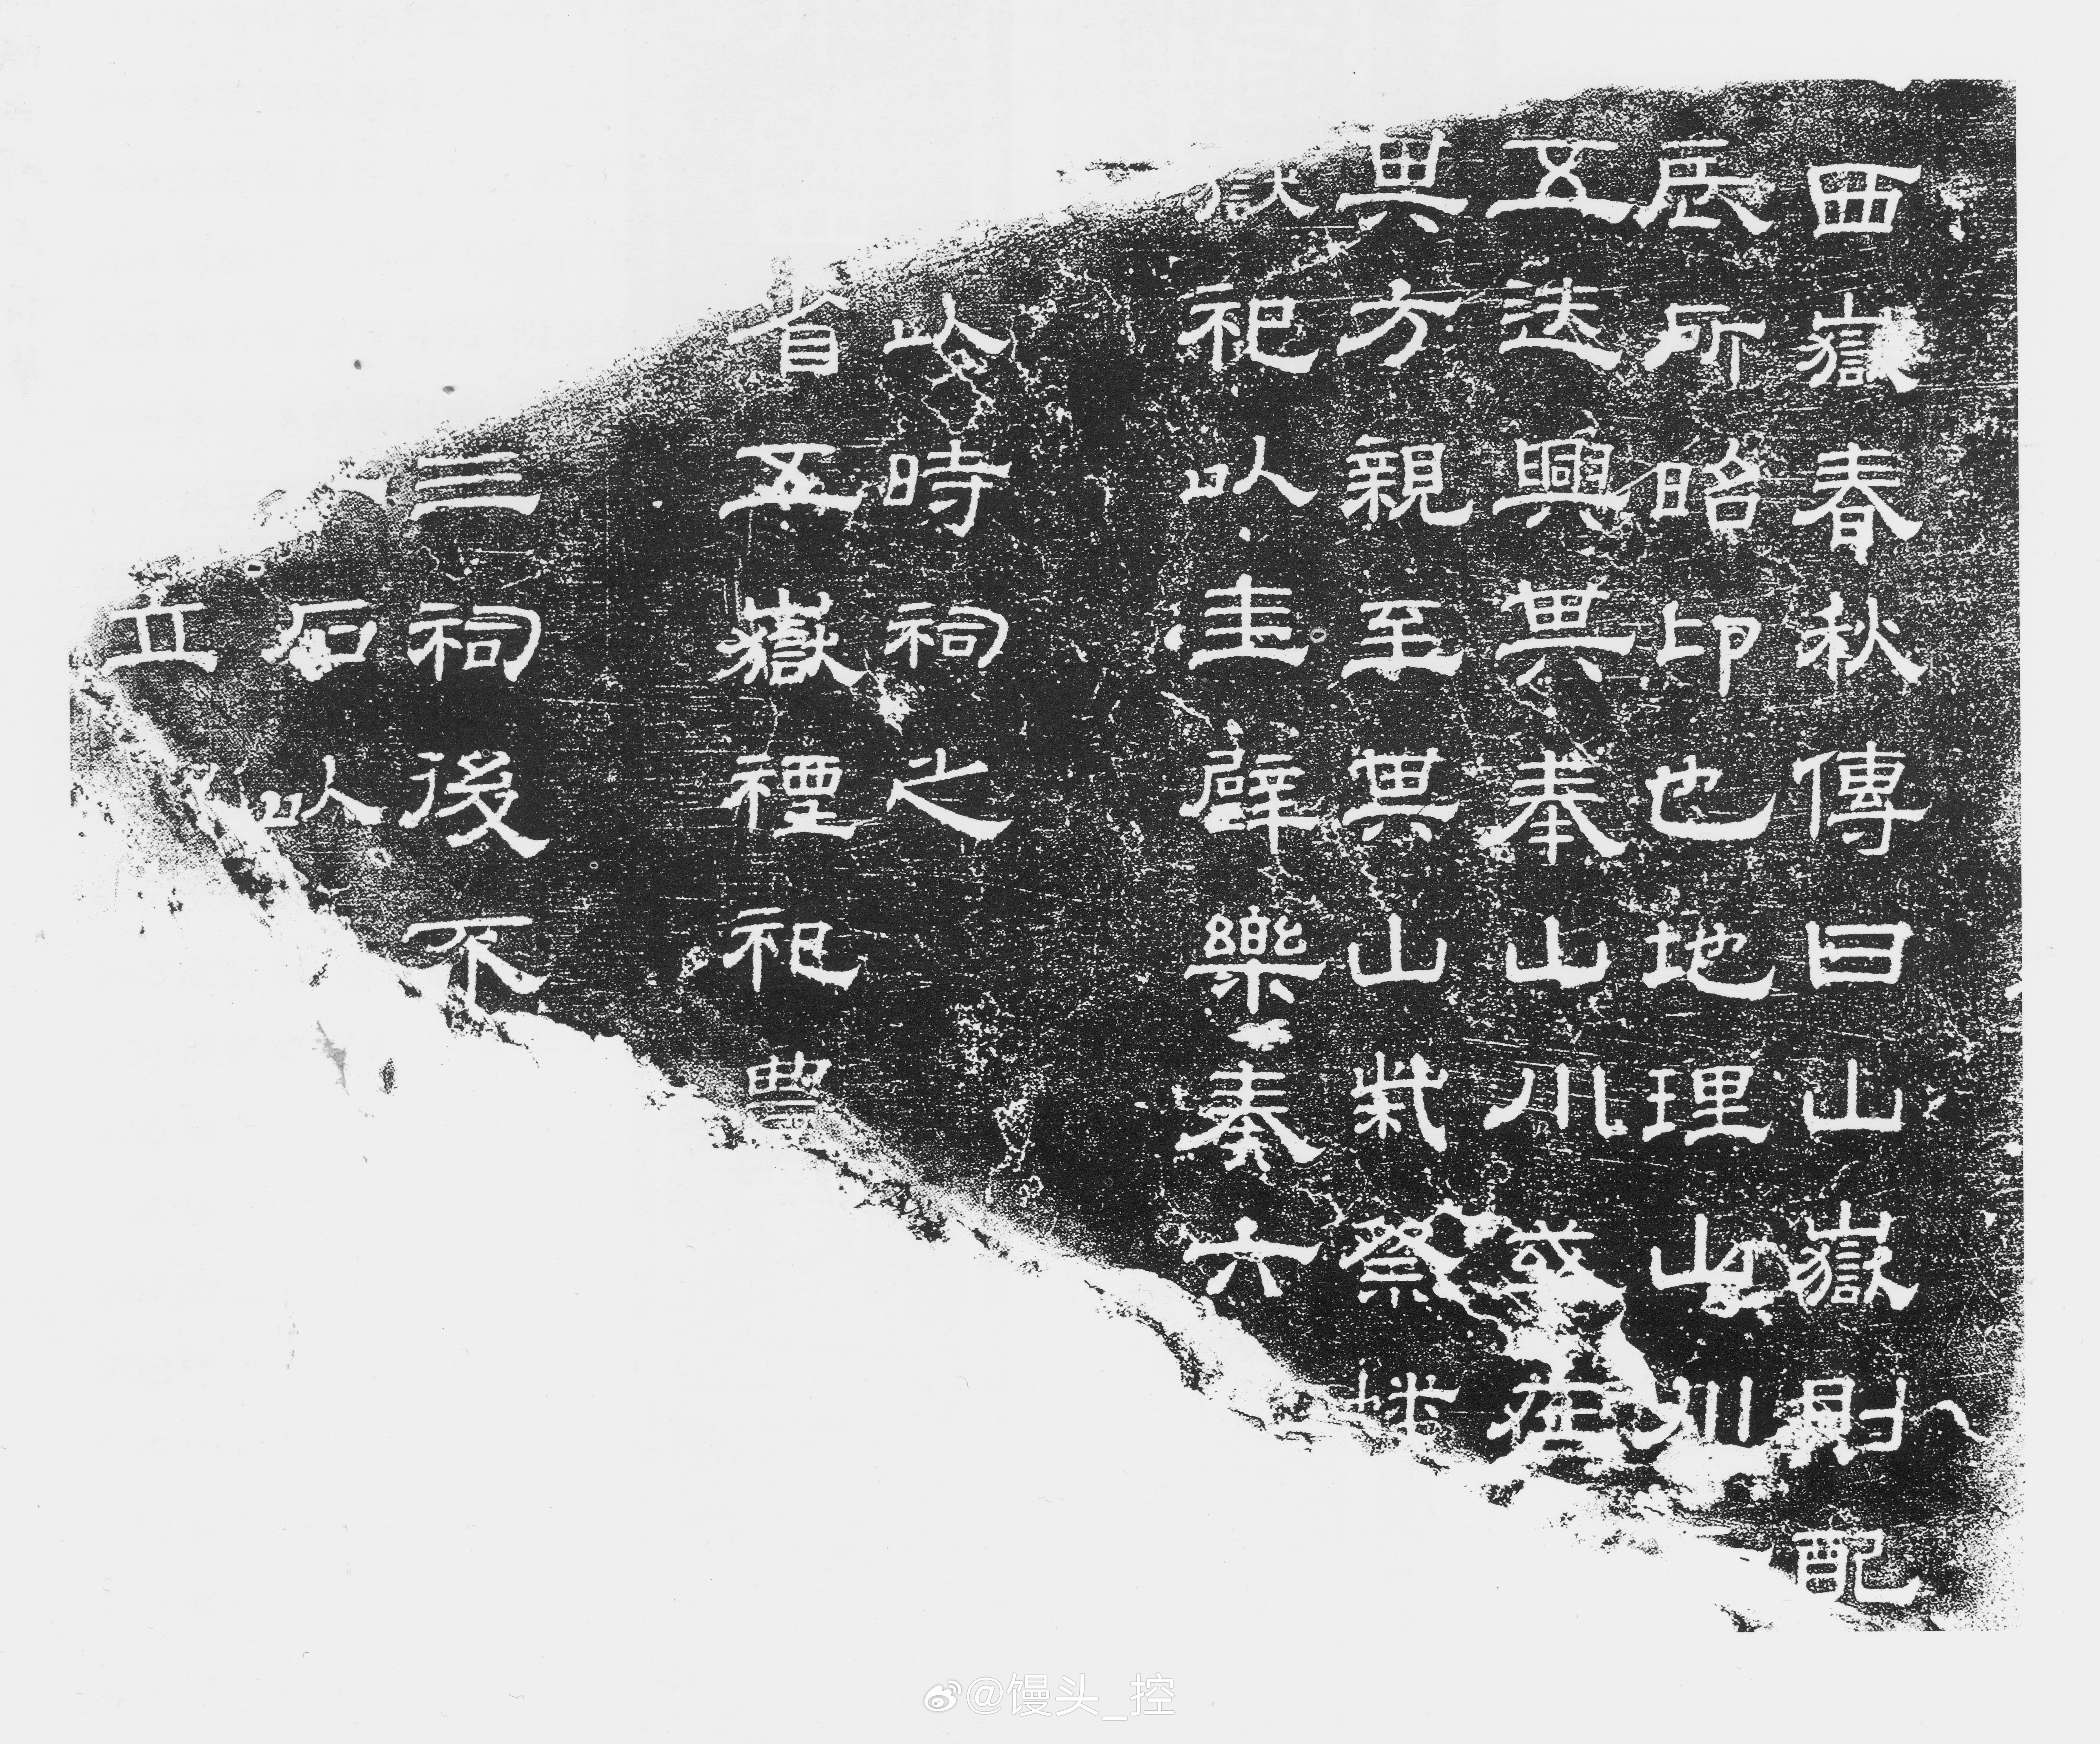 西嶽春秋傳曰山嶽則配
辰所昭卬也地理山川
五迭興其奉山川或在
其方親至其山柴祭燔
嶽祀以圭璧樂奏六
以時祠之
省五嶽禋祀豐
三祠後不
石以
立
@馒头_控